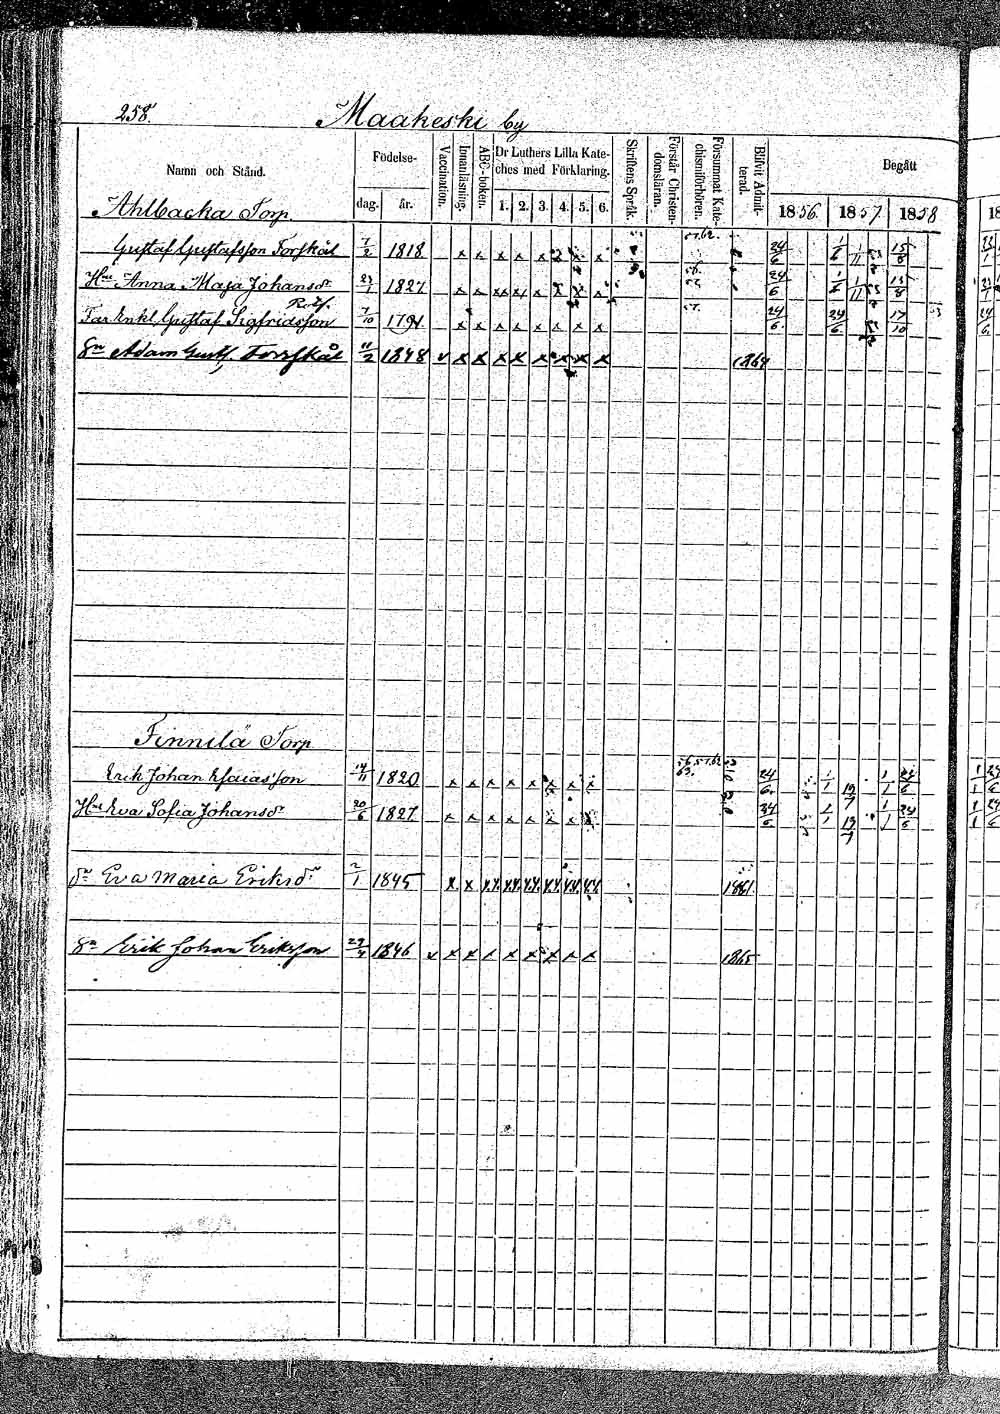 258.
Maakeski by
Namn och Stånd.
Födelse-
dag.
år.
Vaccination.
Innanläsning.
ABC-boken.
Dr Luthers Lilla Kate-
ches med Förklaring.
1. 2. 3. 4. 5. 6.
Skriftens Språk.
Förstår Christen-
domsläran.
Försummat Kate-
chismiförhören.
Blifvit Admit-
terad.
Begått
1856. 1857. 1858
Ahlbacka Torp.
Gustaf Gustafsson Forsskål 7/2 1818 x x x x x x x x 57.62. 24/6 1/6 1/11 15/8
Hu Anna Maja Johansdr 1827 x x xx xx x x x x 24/6 1/6 1/11 15/8
Far Enkl. Gustaf Sigfridsson 7/10 1791 x x x x x x x x 57. 24/6 24/6 17/10
Sn Adam Gust. Forsskål 11/2 1848 v x x x x x x x x 1864
Finnilä Torp
Erik Johan Esaiasson 14/11 1820 x x x x x x x x 56.57.62 63. 24/6 1/1 19/7 1/1 24/6
Hu Eva Sofia Johansdr 20/6 1827 x x x x x x x x 24/6 1/1 19/7 1/1 24/6
dr Eva Maria Eriksdr 2/1 1845 x x xx xx xx xx xx xx 1861.
Sn Erik Johan Eriksson 29/4 1846 v x x x x x x x x 1865